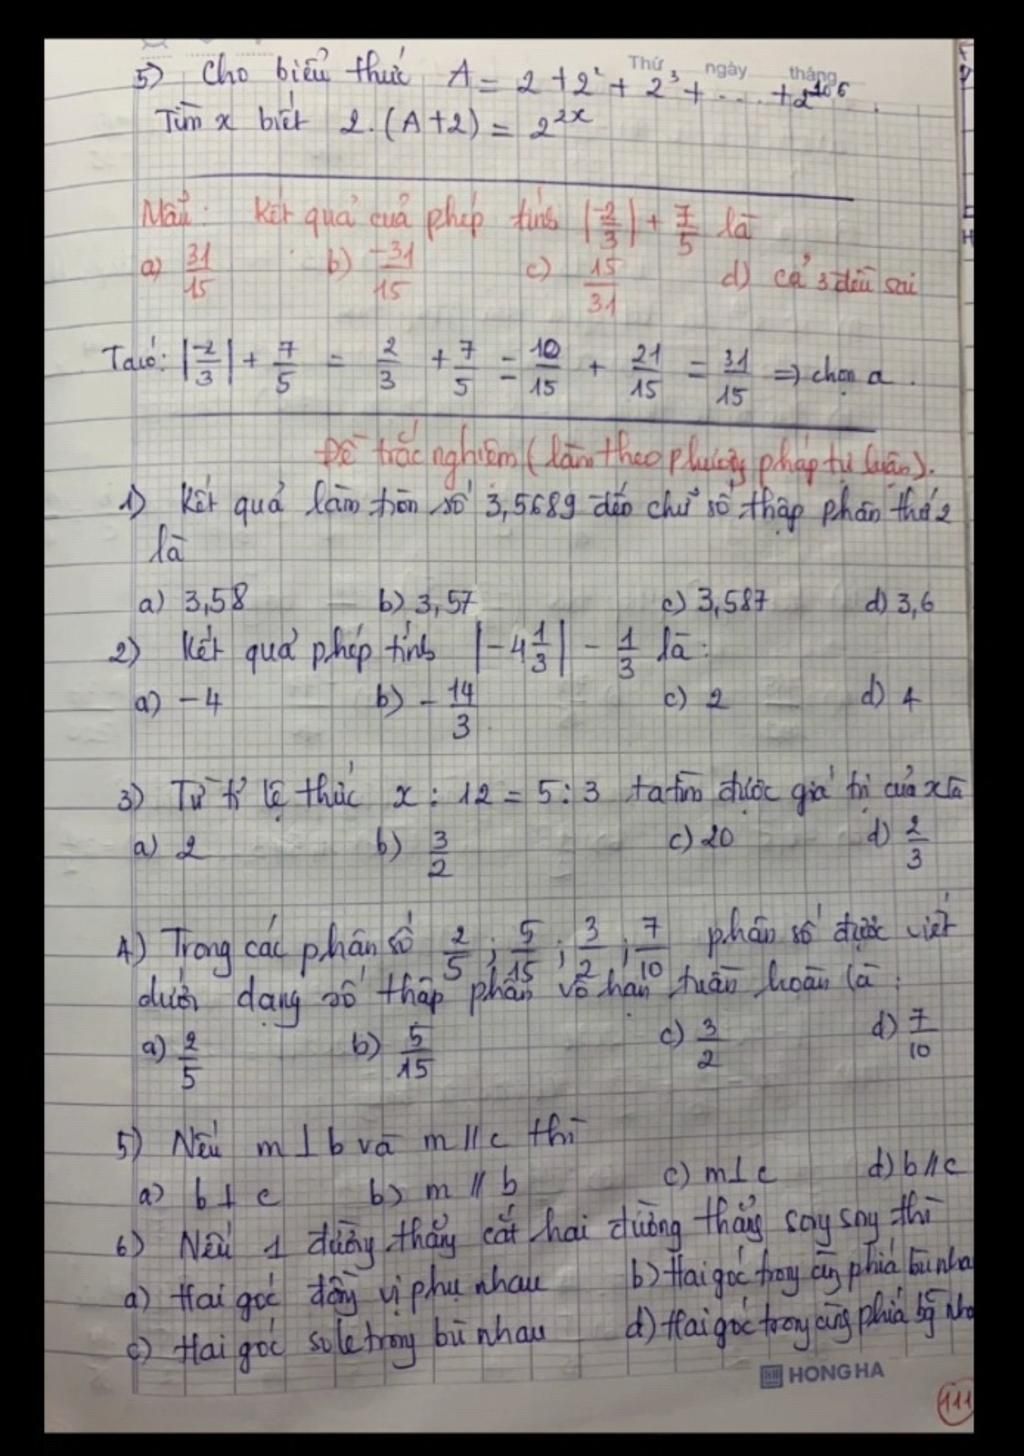 Thứ ngày tháng
5) Cho biểu thức A = 2 + 2² + 2³ + ... + 2¹⁰⁶.
Tìm x biết 2.(A+2) = 2²ˣ
Mẫu: Kết quả của phép tính |-2/3| + 7/5 là
a) 31/15 b) -31/15 c) 15/31 d) cả 3 đều sai
Ta có: |-2/3| + 7/5 = 2/3 + 7/5 = 10/15 + 21/15 = 31/15 => chọn a.
Đề trắc nghiệm (làm theo phương pháp tự luận).
1) Kết quả làm tròn số 3,5689 đến chữ số thập phân thứ 2
là
a) 3,58 b) 3,57 c) 3,587 d) 3,6
2) Kết quả phép tính |-4 1/3| - 1/3 là:
a) -4 b) -14/3 c) 2 d) 4
3) Từ tỉ lệ thức x : 12 = 5 : 3 ta tìm được giá trị của x là
a) 2 b) 3/2 c) 20 d) 2/3
4) Trong các phân số 2/5 ; 5/15 ; 3/2 ; 7/10 phân số được viết
dưới dạng số thập phân vô hạn tuần hoàn là:
a) 2/5 b) 5/15 c) 3/2 d) 7/10
5) Nếu m ⊥ b và m // c thì
a) b ⊥ c b) m // b c) m ⊥ c d) b // c
6) Nếu 1 đường thẳng cắt hai đường thẳng song song thì
a) Hai góc đồng vị phụ nhau b) Hai góc trong cùng phía bù nha
c) Hai góc so le trong bù nhau d) Hai góc trong cùng phía bg nha
HONG HA
111